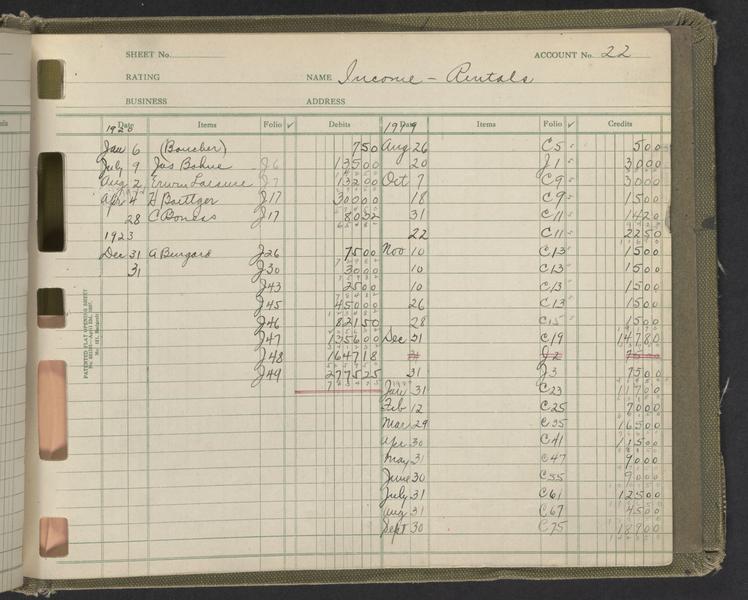 SHEET No. ACCOUNT No. 22
RATING NAME Income - Rentals
BUSINESS ADDRESS
Date Items Folio ✓ Debits Date Items Folio ✓ Credits
Jan 6 (Boucher) 7 50 Aug 26 C5 5 00
July 9 Jos Bohne J6 135 00 20 J1 30 00
Aug 2 Erwin J7 132 00 Oct 7 C9 30 00
Apr 4 H Boettger J17 300 00 18 C9 15 00
28 C J17 31 C11 14 20
1923 22 C11 22 50
Dec 31 A Burgard J26 75 00 Nov 10 C13 15 00
31 J30 30 00 10 C13 15 00
J43 25 00 10 C13 15 00
J45 450 00 26 C13 15 00
J46 821 50 28 C15 15 00
J47 1356 00 Dec 31 C19 147 80
J48 1647 18 31 J2 75
J49 2775 25 31 J3 75 00
Jan 31 C23 117 00
Feb 12 C25 70 00
Mar 29 C35 165 00
Apr 30 C41 115 00
May 31 C47 90 00
June 30 C55 90 00
July 31 C61 125 00
Aug 31 C67 45 00
Sept 30 C75 189 00
PATENTED FLAT OPENING SHEET